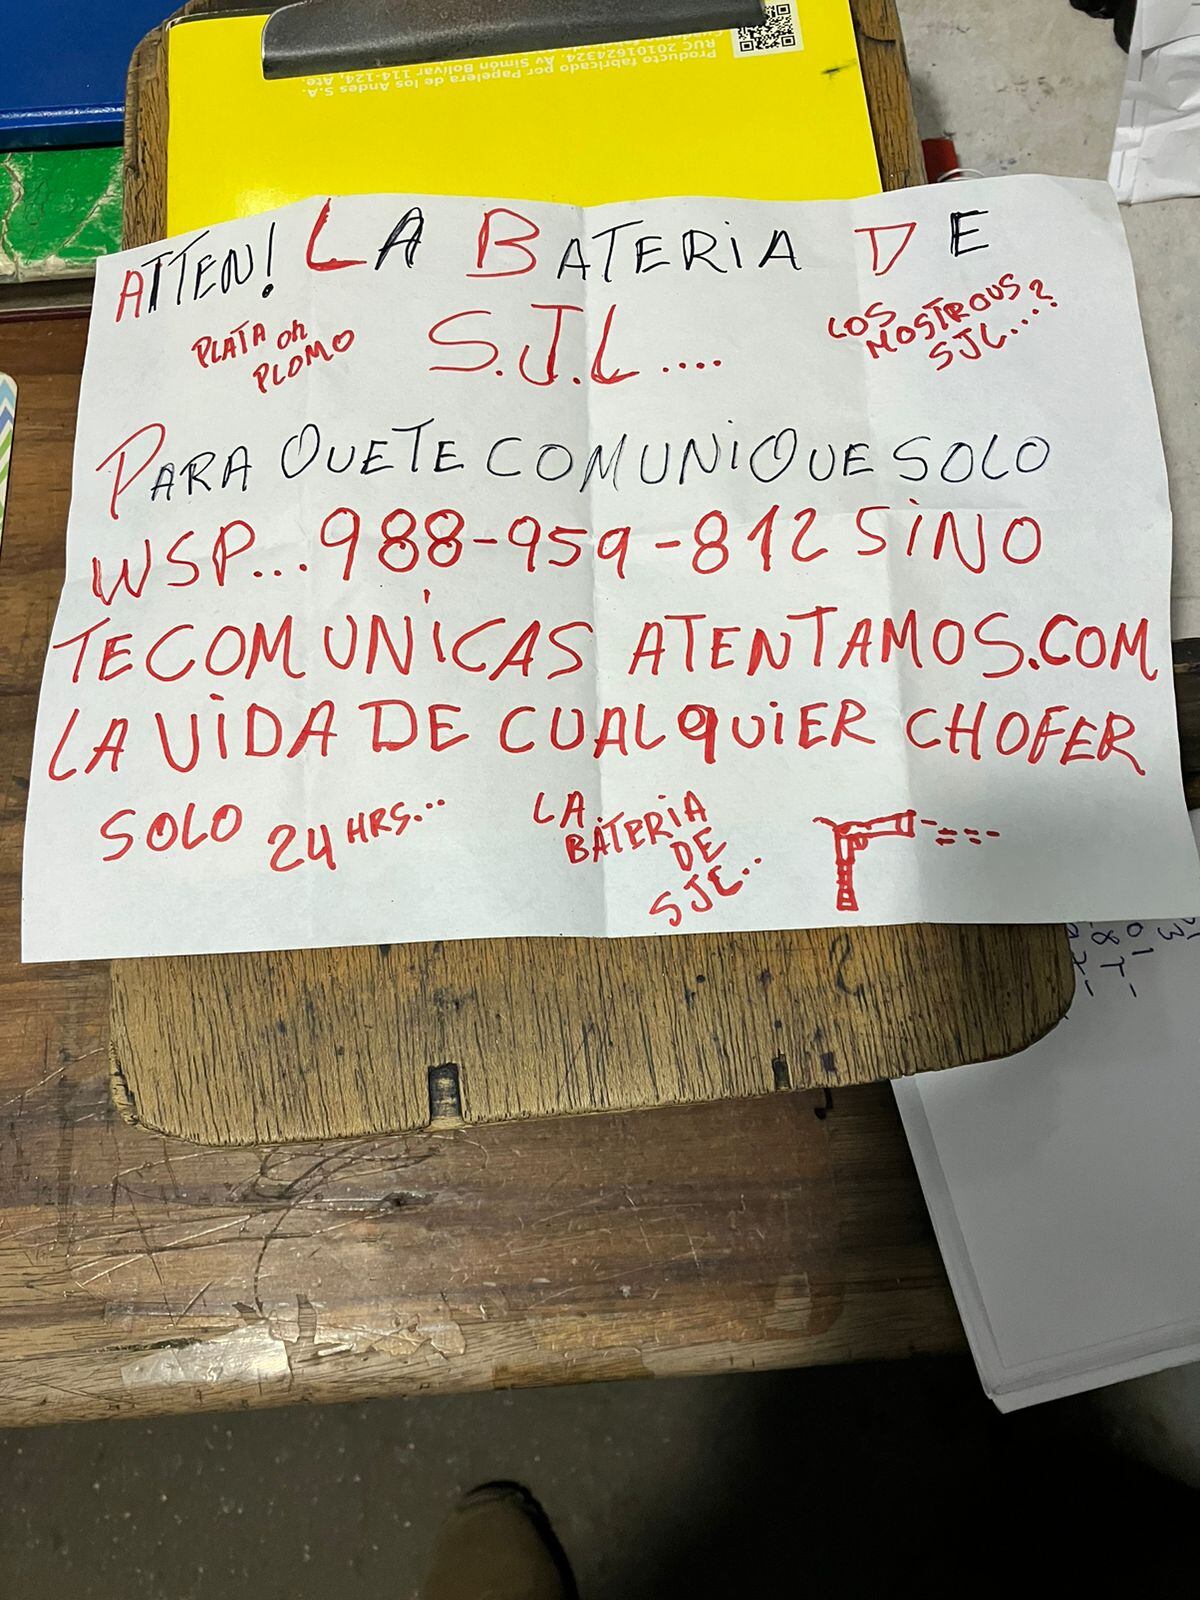 Producto fabricado por Papelera de los Andes S.A.
RUC 20101624324. Av Simón Bolívar 114-124, Ate.
ATTEN! LA BATERiA DE
S.J.L....
PLATA Oh
PLOMO
LOS
MOSTROUS
SJL....?
PARA QUE TE COMUNiQUE SOLO
WSP...988-959-812 SiNO
TE COMUNiCAS ATENTAMOS.COM
LA ViDA DE CUALqUiER CHOFER
SOLO 24 HRS...
LA
BATERiA
DE
SJE..